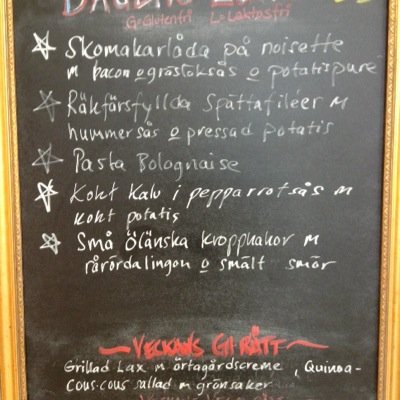 G=Glutenfri L=Laktosfri
Skomakarlåda på noisette
m bacon o grästoksås o potatispure
Räkfärsfyllda Spättafiléer m
hummersås o pressad potatis
Pasta Bolognaise
Kokt Kalv i pepparrotsås m
kokt potatis
Små öländska kroppkakor m
rårördalingon o smält smör
VECKANS GI RÄTT
Grillad Lax m örtagårdscreme, Quinoa-
cous-cous sallad m grönsaker